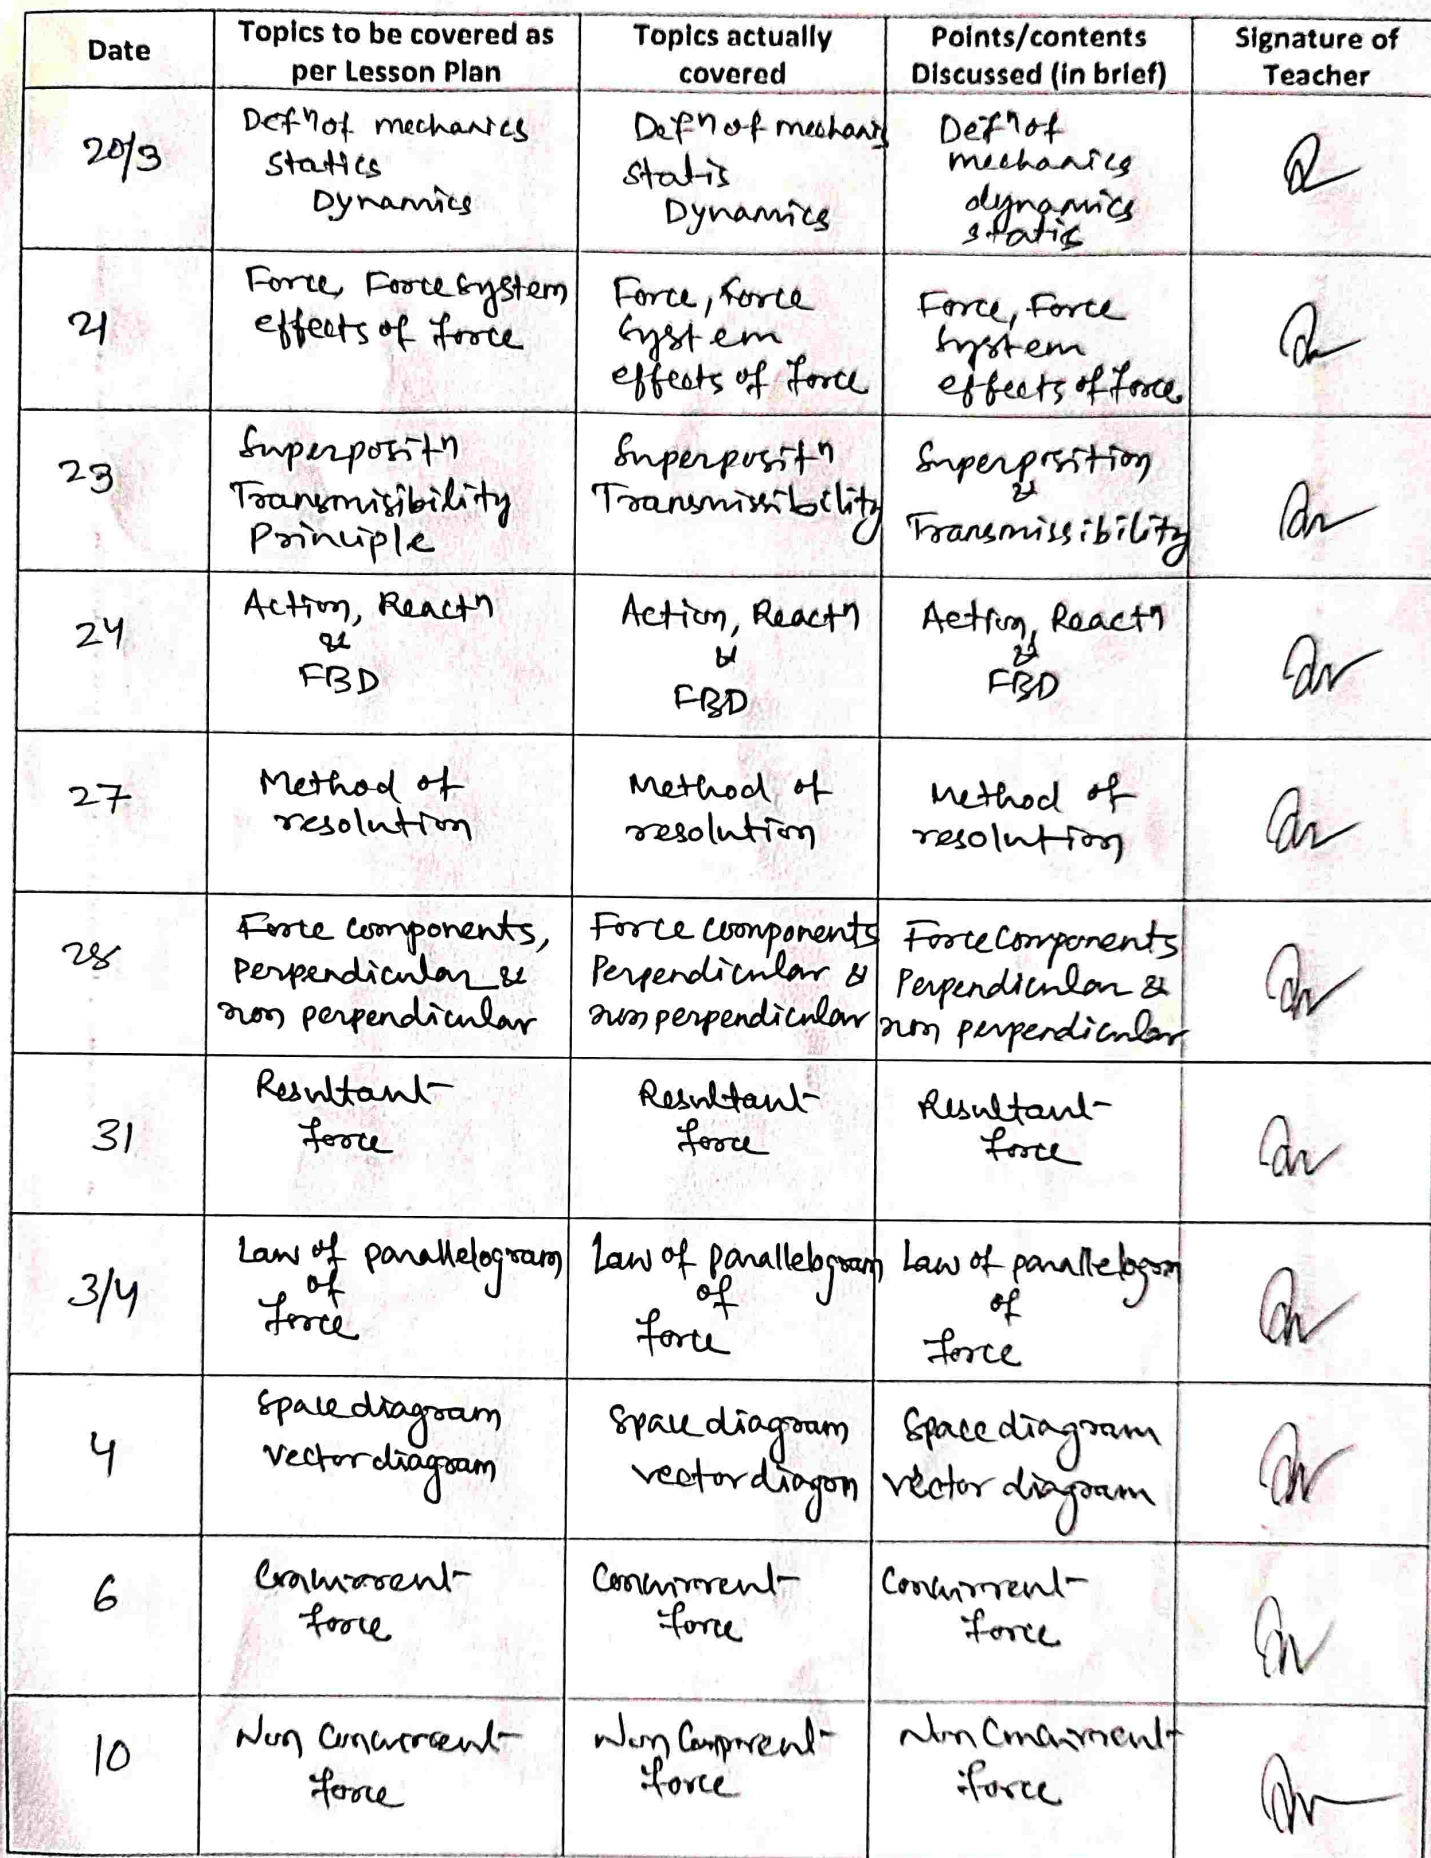 Date
Topics to be covered as
per Lesson Plan
Topics actually
covered
Points/contents
Discussed (in brief)
Signature of
Teacher
20/3
Defn of mechanics
Statics
Dynamics
Defn of mechanis
Statis
Dynamics
Defn of
mechanics
dynamics
static
21
Force, Force System
effects of force
Force, force
System
effects of force
Force, Force
System
effects of force
23
Superpositn
Transmisibility
Principle
Superpositn
Transmissibility
Superposition
&
Transmissibility
24
Action, Reactn
&
FBD
Action, Reactn
&
FBD
Action, Reactn
&
FBD
27
Method of
resolution
Method of
resolution
Method of
resolution
28
Force components,
Perpendicular &
non perpendicular
Force components
Perpendicular &
non perpendicular
Force components
Perpendicular &
non perpendicular
31
Resultant
force
Resultant
force
Resultant
force
3/4
Law of parallelogram
of
force
Law of parallelogram
of
force
Law of parallelogram
of
force
4
Space diagram
vector diagram
Space diagram
vector diagram
Space diagram
vector diagram
6
Concurrent
force
Concurrent
force
Concurrent
force
10
Non Concurrent
force
Non
force
Non Concurrent
force